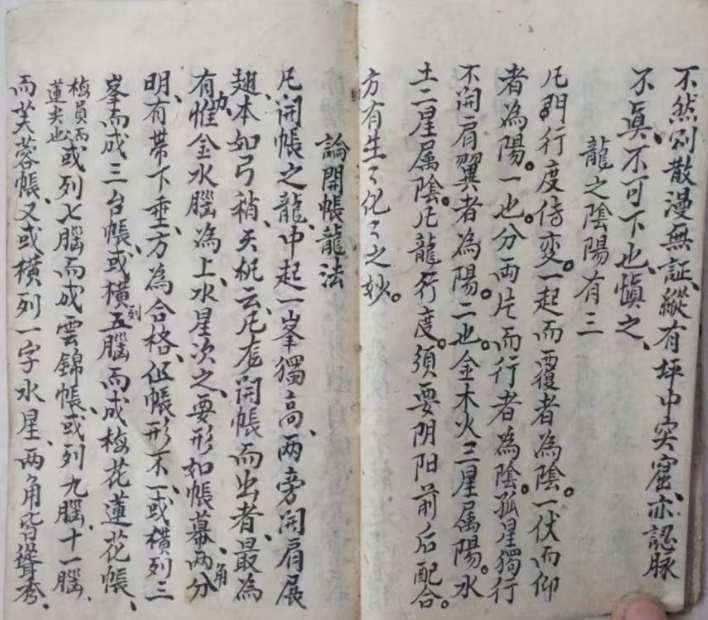 不然則散漫無証、縱有坪中突窟、亦認脉
不真、不可下也、慎之、
龍之陰陽有三
凡門行度倚变。一起而覆者為陰。一伏而仰
者為陽。一也。分兩片而行者為陰。孤星獨行
不開肩翼者為陽。二也。金木火三星属陽。水
土二星属陰。凡龍行度。須要阴阳前后配合。
方有生々化々之妙。
論開帳龍法
凡開帳之龍、中起一峯獨高、兩旁開肩展
翅、本如弓稍、天梯云、凡龙開帳而出者、最為
有力、惟金水腦為上、水星次之、要形如帳幕、兩角分
明、有帶下垂、方為合格、但帳形不一、或橫列三
峯而成三台帳、或橫列五腦而成梅花蓮花帳、
梅員而蓮尖也、或列七腦而成雲錦帳、或列九腦十一腦、
而芙蓉帳、又或橫列一字水星、兩角皆聳秀、